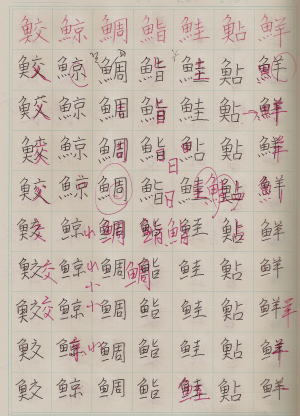 鮫 鯨 鯛 鮨 鮭 鮎 鮮
鮫 鯨 鯛 鮨 鮭 鮎 鮮
鮫 鯨 鯛 鮨 鮭 鮎 鮮
鮫 鯨 鯛 鮨 鮭 鮎 鮮
鮫 鯨 鯛 鮨 鮭 鮎 鮮
鮫 鯨 鯛 鮨 鮭 鮎 鮮
鮫 鯨 鯛 鮨 鮭 鮎 鮮
鮫 鯨 鯛 鮨 鮭 鮎 鮮
鮫 鯨 鯛 鮨 鮭 鮎 鮮
鮫 鯨 鯛 鮨 鮭 鮎 鮮